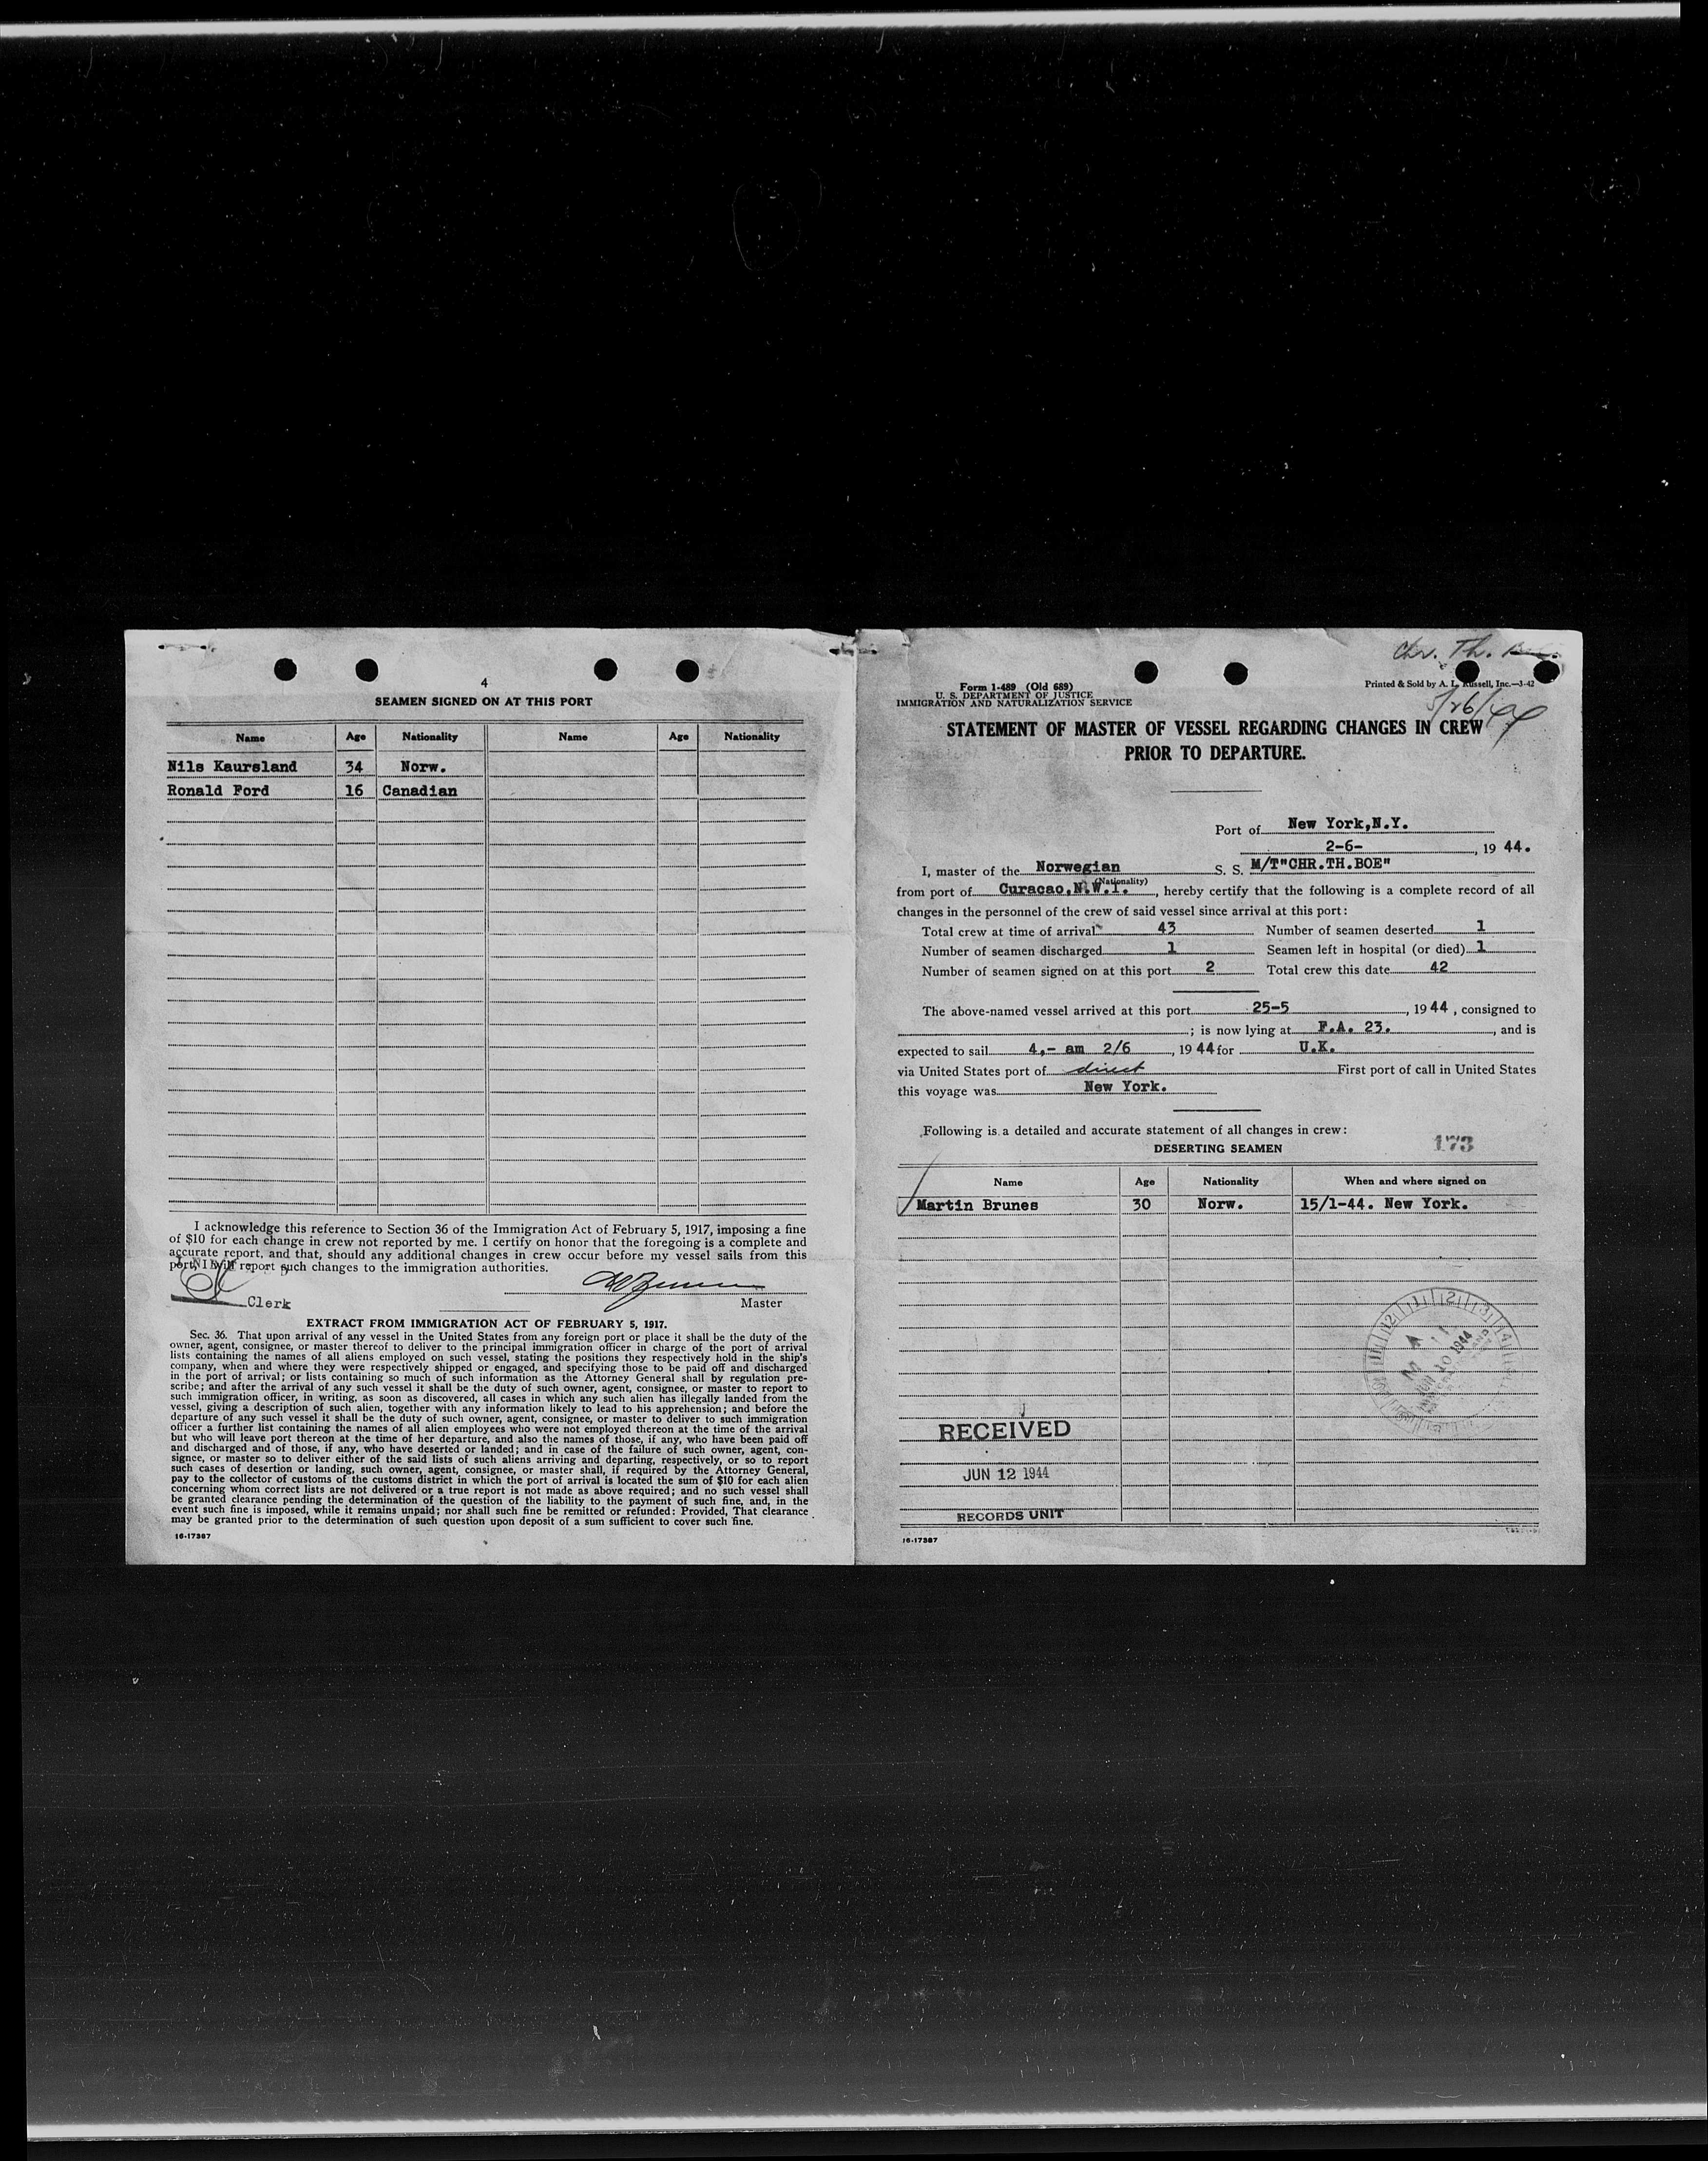 4
SEAMEN SIGNED ON AT THIS PORT
Name Age Nationality Name Age Nationality
Nils Kaursland 34 Norw.
Ronald Ford 16 Canadian
I acknowledge this reference to Section 36 of the Immigration Act of February 5, 1917, imposing a fine
of $10 for each change in crew not reported by me. I certify on honor that the foregoing is a complete and
accurate report, and that, should any additional changes in crew occur before my vessel sails from this
port, I will report such changes to the immigration authorities.
Clerk Master
EXTRACT FROM IMMIGRATION ACT OF FEBRUARY 5, 1917.
Sec. 36. That upon arrival of any vessel in the United States from any foreign port or place it shall be the duty of the
owner, agent, consignee, or master thereof to deliver to the principal immigration officer in charge of the port of arrival
lists containing the names of all aliens employed on such vessel, stating the positions they respectively hold in the ship's
company, when and where they were respectively shipped or engaged, and specifying those to be paid off and discharged
in the port of arrival; or lists containing so much of such information as the Attorney General shall by regulation pre-
scribe; and after the arrival of any such vessel it shall be the duty of such owner, agent, consignee, or master to report to
such immigration officer, in writing, as soon as discovered, all cases in which any such alien has illegally landed from the
vessel, giving a description of such alien, together with any information likely to lead to his apprehension; and before the
departure of any such vessel it shall be the duty of such owner, agent, consignee, or master to deliver to such immigration
officer a further list containing the names of all alien employees who were not employed thereon at the time of the arrival
but who will leave port thereon at the time of her departure, and also the names of those, if any, who have been paid off
and discharged and of those, if any, who have deserted or landed; and in case of the failure of such owner, agent, con-
signee, or master so to deliver either of the said lists of such aliens arriving and departing, respectively, or so to report
such cases of desertion or landing, such owner, agent, consignee, or master shall, if required by the Attorney General,
pay to the collector of customs of the customs district in which the port of arrival is located the sum of $10 for each alien
concerning whom correct lists are not delivered or a true report is not made as above required; and no such vessel shall
be granted clearance pending the determination of the question of the liability to the payment of such fine, and, in the
event such fine is imposed, while it remains unpaid; nor shall such fine be remitted or refunded: Provided, That clearance
may be granted prior to the determination of such question upon deposit of a sum sufficient to cover such fine.
16-17387
Chr. Th.
Form I-489 (Old 689)
U. S. DEPARTMENT OF JUSTICE
IMMIGRATION AND NATURALIZATION SERVICE
Printed & Sold by A. L. Russell, Inc.—3-42
5/26/44
STATEMENT OF MASTER OF VESSEL REGARDING CHANGES IN CREW
PRIOR TO DEPARTURE.
Port of New York,N.Y.
2-6- , 19 44.
I, master of the Norwegian S. S. M/T"CHR.TH.BOE"
(Nationality)
from port of Curacao,N.W.I. , hereby certify that the following is a complete record of all
changes in the personnel of the crew of said vessel since arrival at this port:
Total crew at time of arrival 43 Number of seamen deserted 1
Number of seamen discharged 1 Seamen left in hospital (or died) 1
Number of seamen signed on at this port 2 Total crew this date 42
The above-named vessel arrived at this port 25-5 , 19 44 , consigned to
; is now lying at F.A. 23. , and is
expected to sail 4,- am 2/6 , 19 44 for U.K.
via United States port of direct First port of call in United States
this voyage was New York.
Following is a detailed and accurate statement of all changes in crew:
DESERTING SEAMEN 173
Name Age Nationality When and where signed on
Martin Brunes 30 Norw. 15/1-44. New York.
JUN 10 1944
RECEIVED
JUN 12 1944
RECORDS UNIT
16-17387